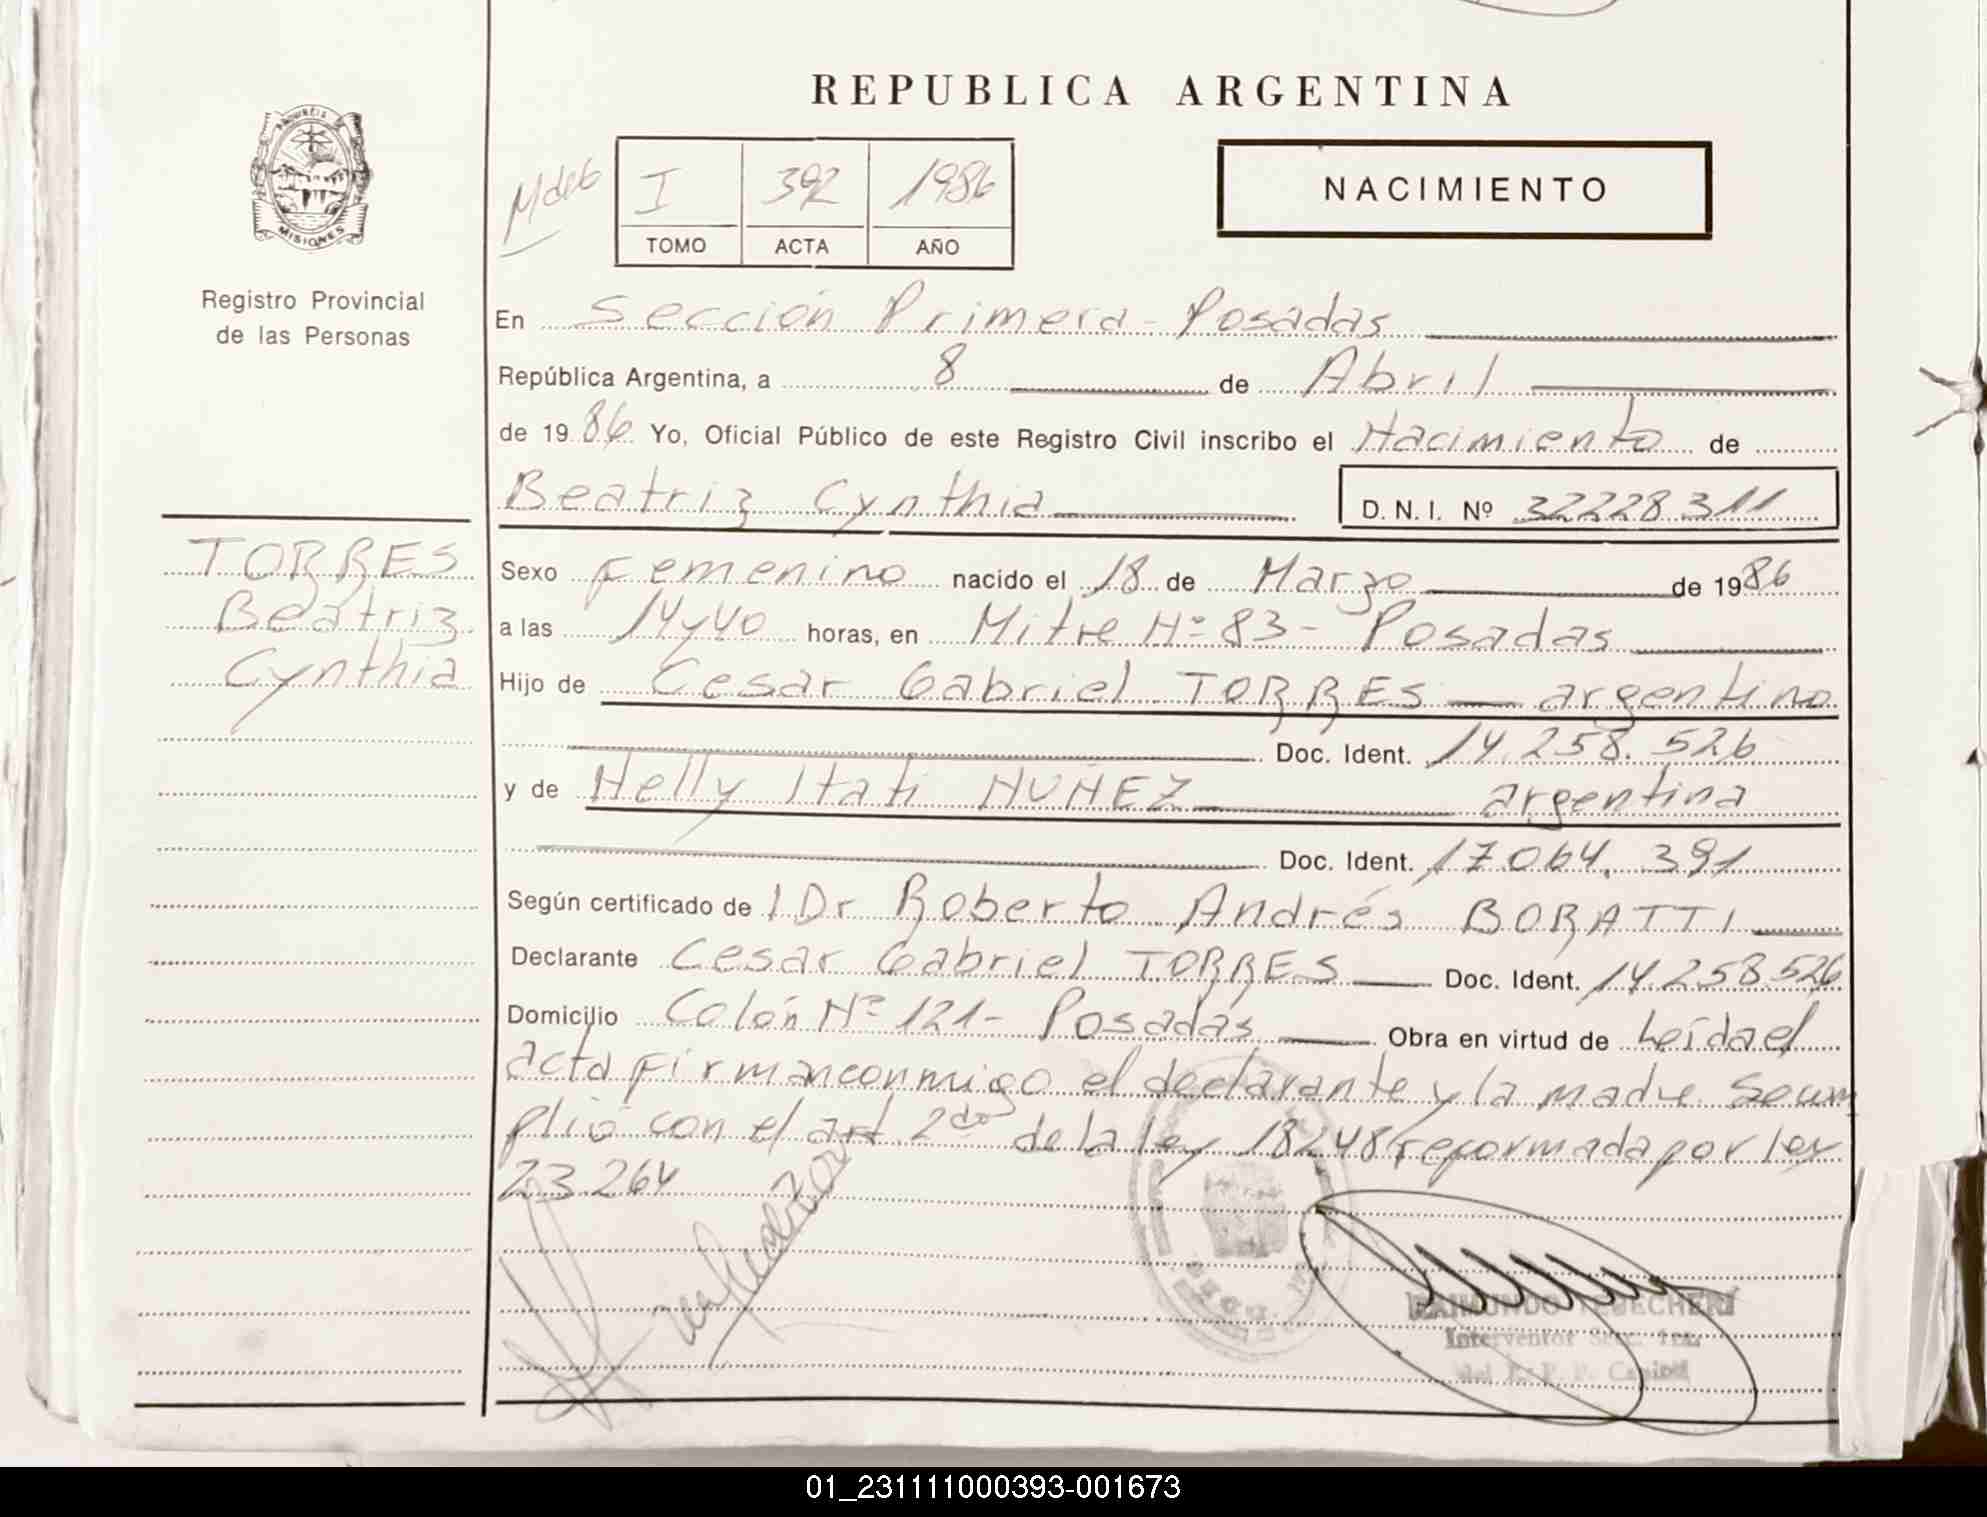 REPUBLICA ARGENTINA
PROVINCIA
MISIONES
I 392 1986
TOMO ACTA AÑO
NACIMIENTO
Registro Provincial
de las Personas
En Sección Primera - Posadas
República Argentina, a 8 de Abril
de 1986 Yo, Oficial Público de este Registro Civil inscribo el Nacimiento de
Beatriz Cynthia D.N.I. Nº 32228311
TORRES
Beatriz
Cynthia
Sexo Femenino nacido el 18 de Marzo de 1986
a las 14y40 horas, en Mitre Nº 83 - Posadas
Hijo de Cesar Gabriel TORRES argentino
Doc. Ident. 14.258.526
y de Nelly Itati NUÑEZ argentina
Doc. Ident. 17.064.391
Según certificado de l Dr Roberto Andrés BORATTI
Declarante Cesar Gabriel TORRES Doc. Ident. 14.258.526
Domicilio Colón Nº 121 - Posadas Obra en virtud de Leída el
acta firman conmigo el declarante y la madre Se cum
plió con el art 2do de la ley 18248 reformada por ley
23.264
RAIMUNDO
Interventor Secc. 1ra.
del R. P. P. Capital
01_231111000393-001673